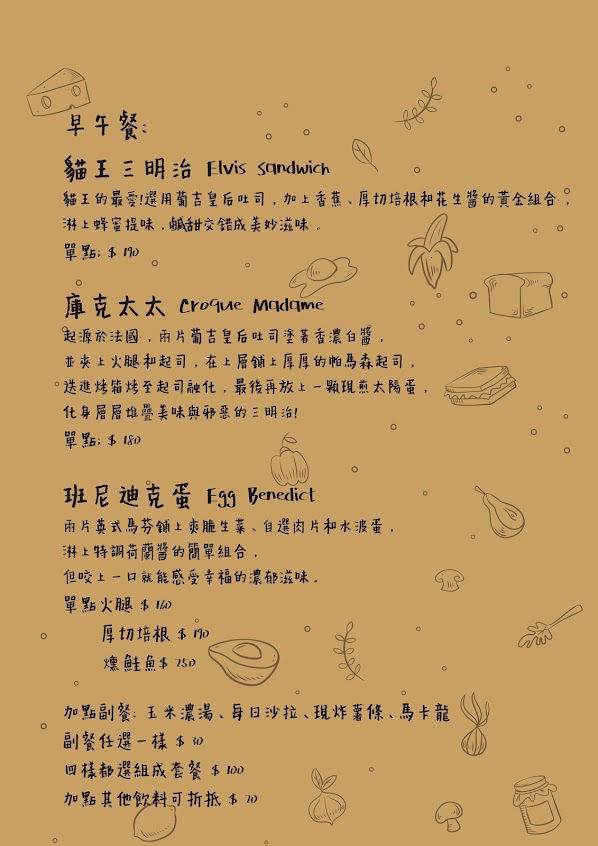 早午餐:
貓王三明治 Elvis Sandwich
貓王的最愛!選用葡吉皇后吐司，加上香蕉、厚切培根和花生醬的黃金組合，
淋上蜂蜜提味，鹹甜交錯成美妙滋味。
單點: $ 190
庫克太太 Croque Madame
起源於法國，兩片葡吉皇后吐司塗著香濃白醬，
並夾上火腿和起司，在上層鋪上厚厚的帕馬森起司，
送進烤箱烤至起司融化，最後再放上一顆現煎太陽蛋，
化身層層堆疊美味與邪惡的三明治!
單點: $ 180
班尼迪克蛋 Egg Benedict
兩片英式馬芬鋪上爽脆生菜、自選肉片和水波蛋，
淋上特調荷蘭醬的簡單組合，
但咬上一口就能感受幸福的濃郁滋味。
單點火腿 $ 160
厚切培根 $ 190
燻鮭魚 $ 250
加點副餐: 玉米濃湯、每日沙拉、現炸薯條、馬卡龍
副餐任選一樣 $ 30
四樣都選組成套餐 $ 100
加點其他飲料可折抵 $ 20